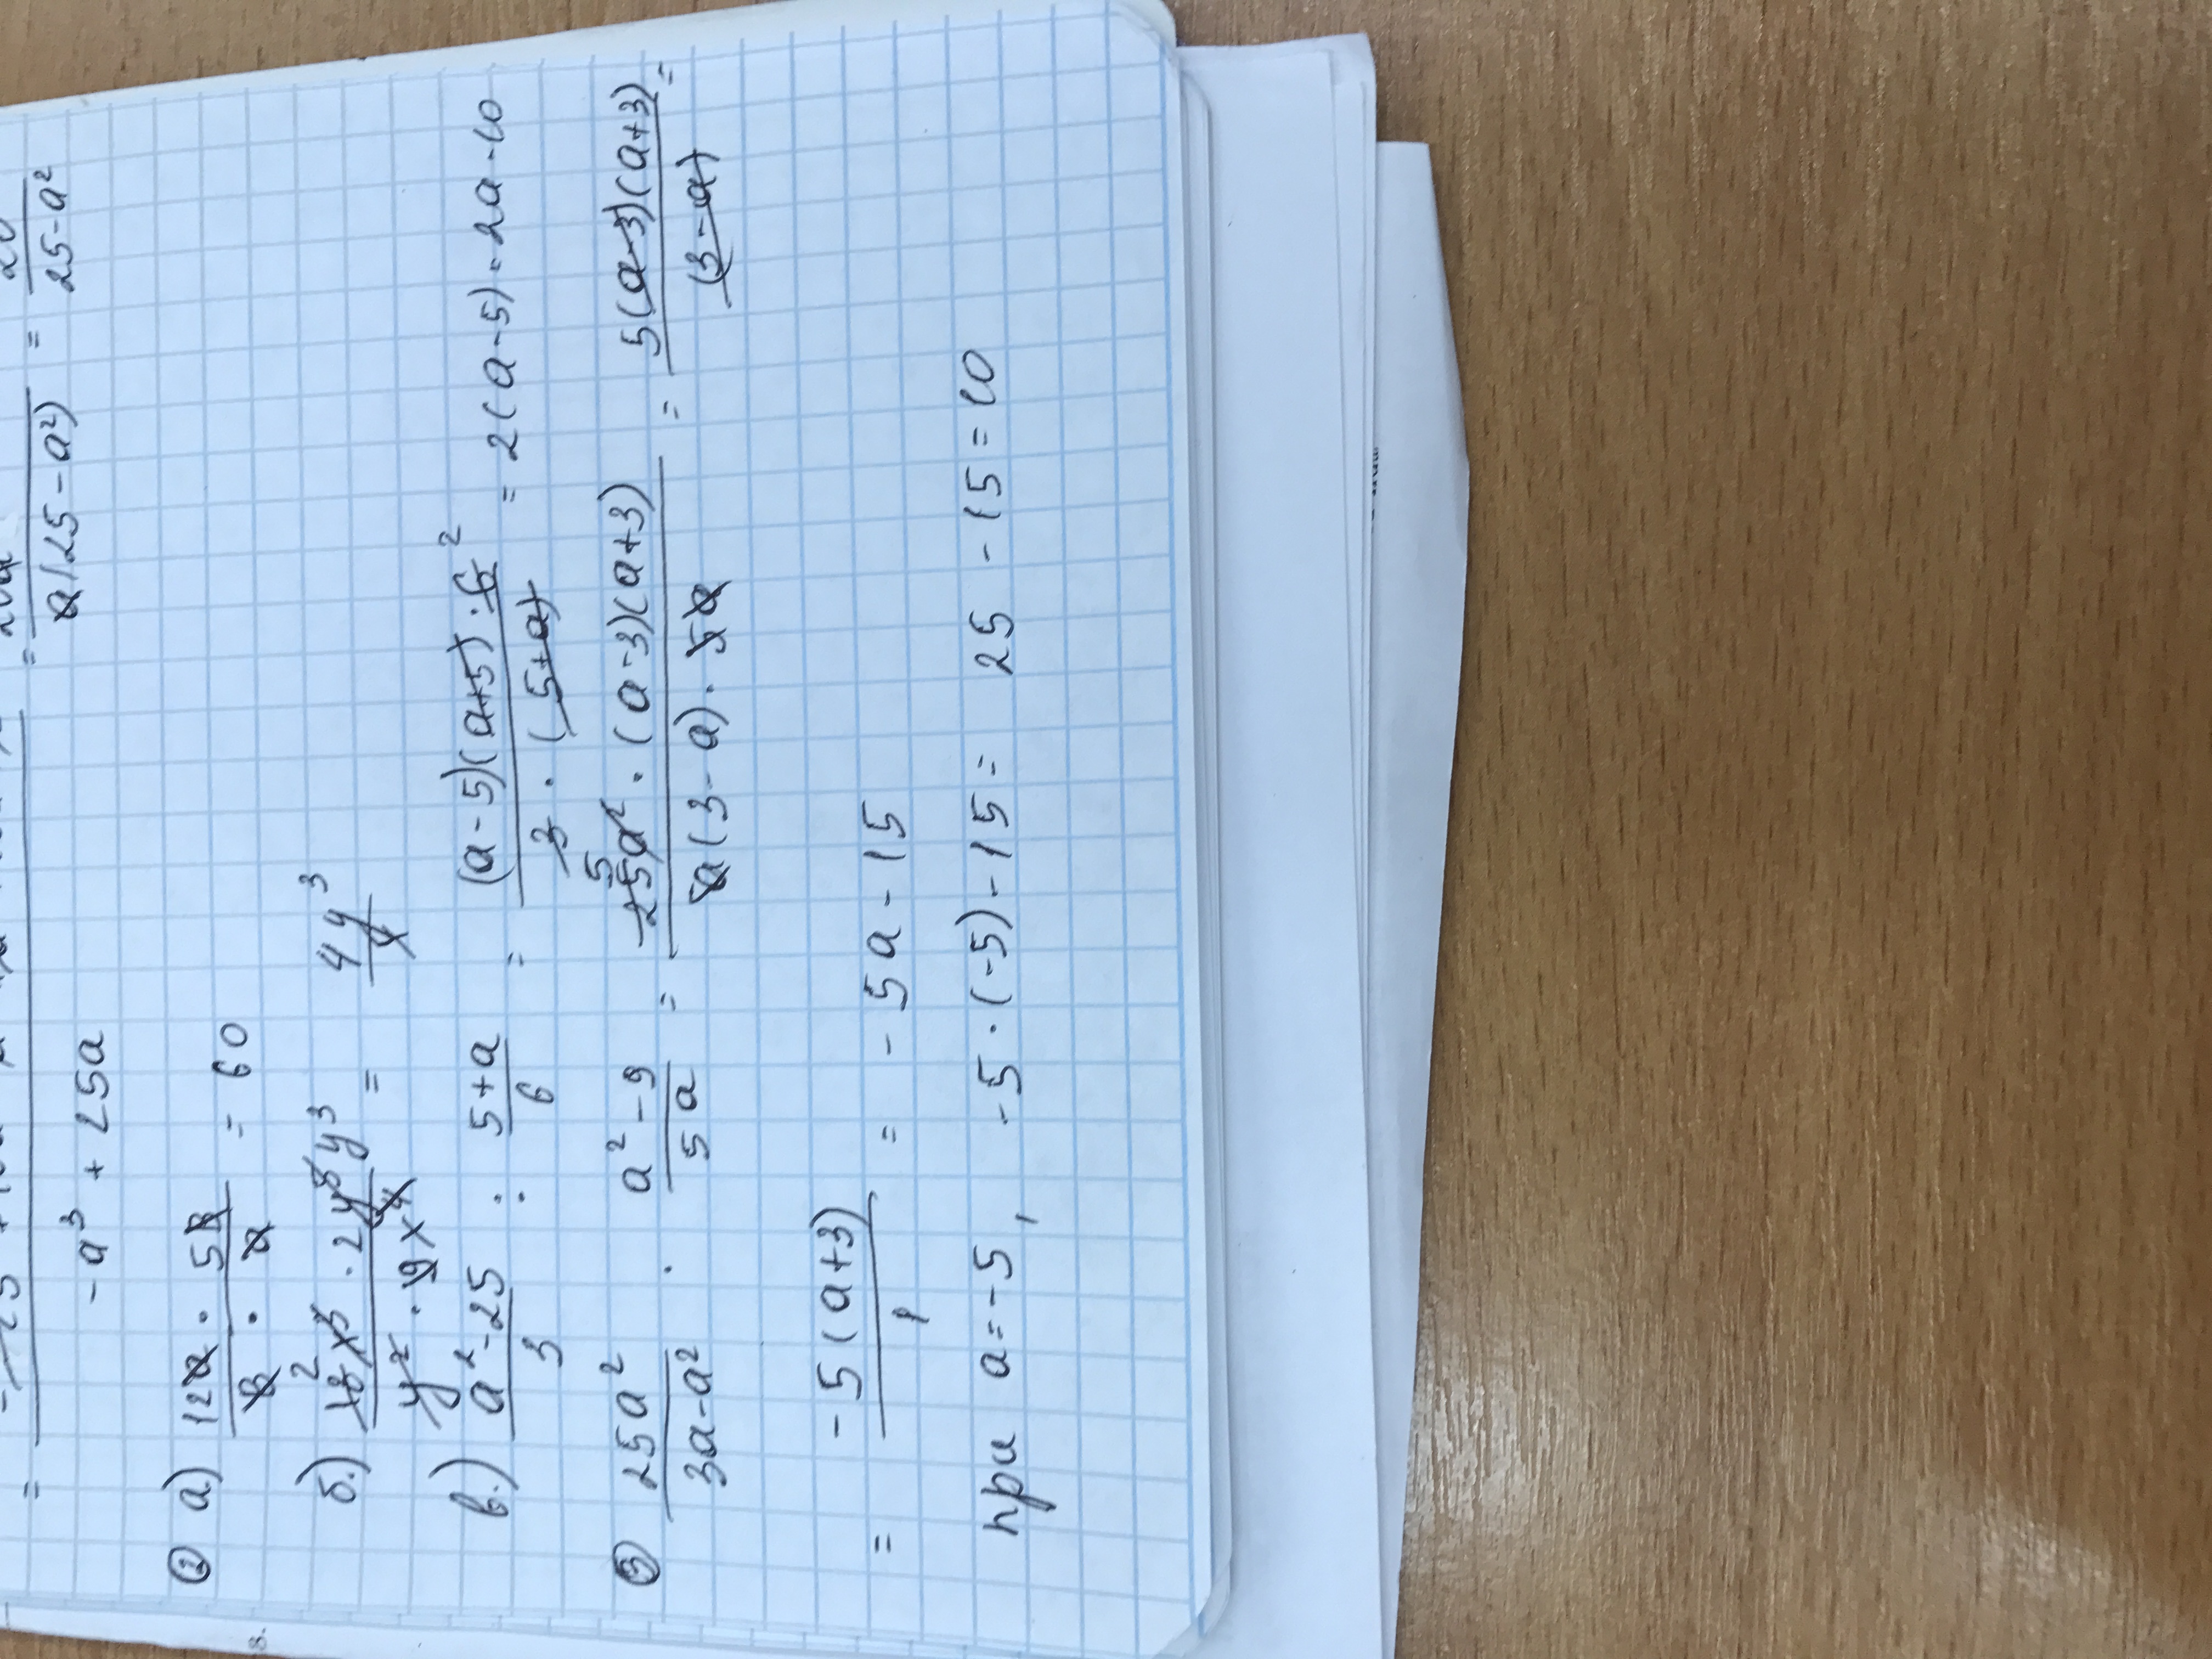 = = = 25-a²
-a³ + 25a a(25-a²)
② а) 12a · 5в / в · a = 60
б.) 18x³ · 2y⁵y³ / y² · 9x⁴ = 4y³/x
в.) a²-25 / 3 : 5+a / 6 = (a-5)(a+5) · 6 2 / 3 · (5+a) = 2(a-5) = 2a-10
③ 25a² / 3a-a² · a²-9 / 5a = 25a² 5 · (a-3)(a+3) / a(3-a) · 5a = 5(a-3)(a+3) / (3-a) =
= -5(a+3) / 1 = -5a-15
при a=-5, -5·(-5)-15= 25-15=10